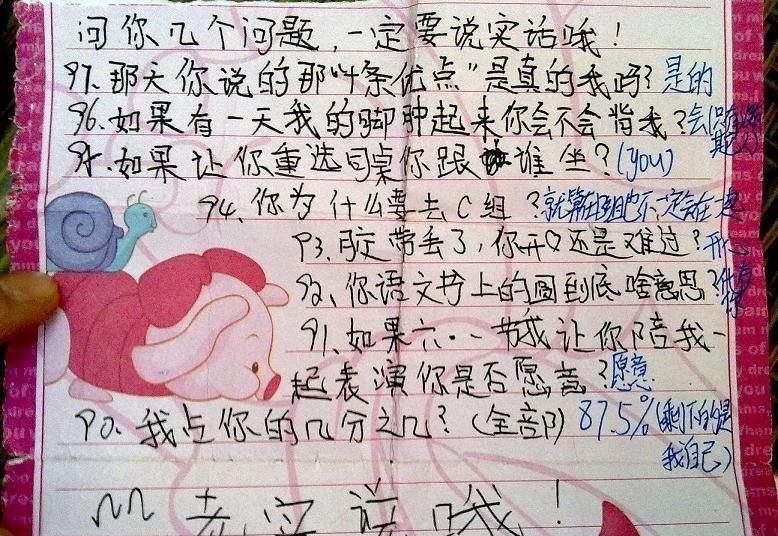 问你几个问题，一定要说实话哦！
97.那天你说的那“4条优点”是真的我吗？是的
96.如果有一天我的脚肿起来你会不会背我？会(只有
起义)
95.如果让你重选同桌你跟谁坐？(you)
94.你为什么要去C组？就算在B组也不一定会在一起
93.胶带丢了，你开心还是难过？开心
92、你语文书上的圆到底啥意思？代表
你
91.如果六·一节我让你陪我一
起表演你是否愿意？愿意
90.我占你的几分之几？(全部) 87.5%(剩下的是
我自己)
老实说哦！